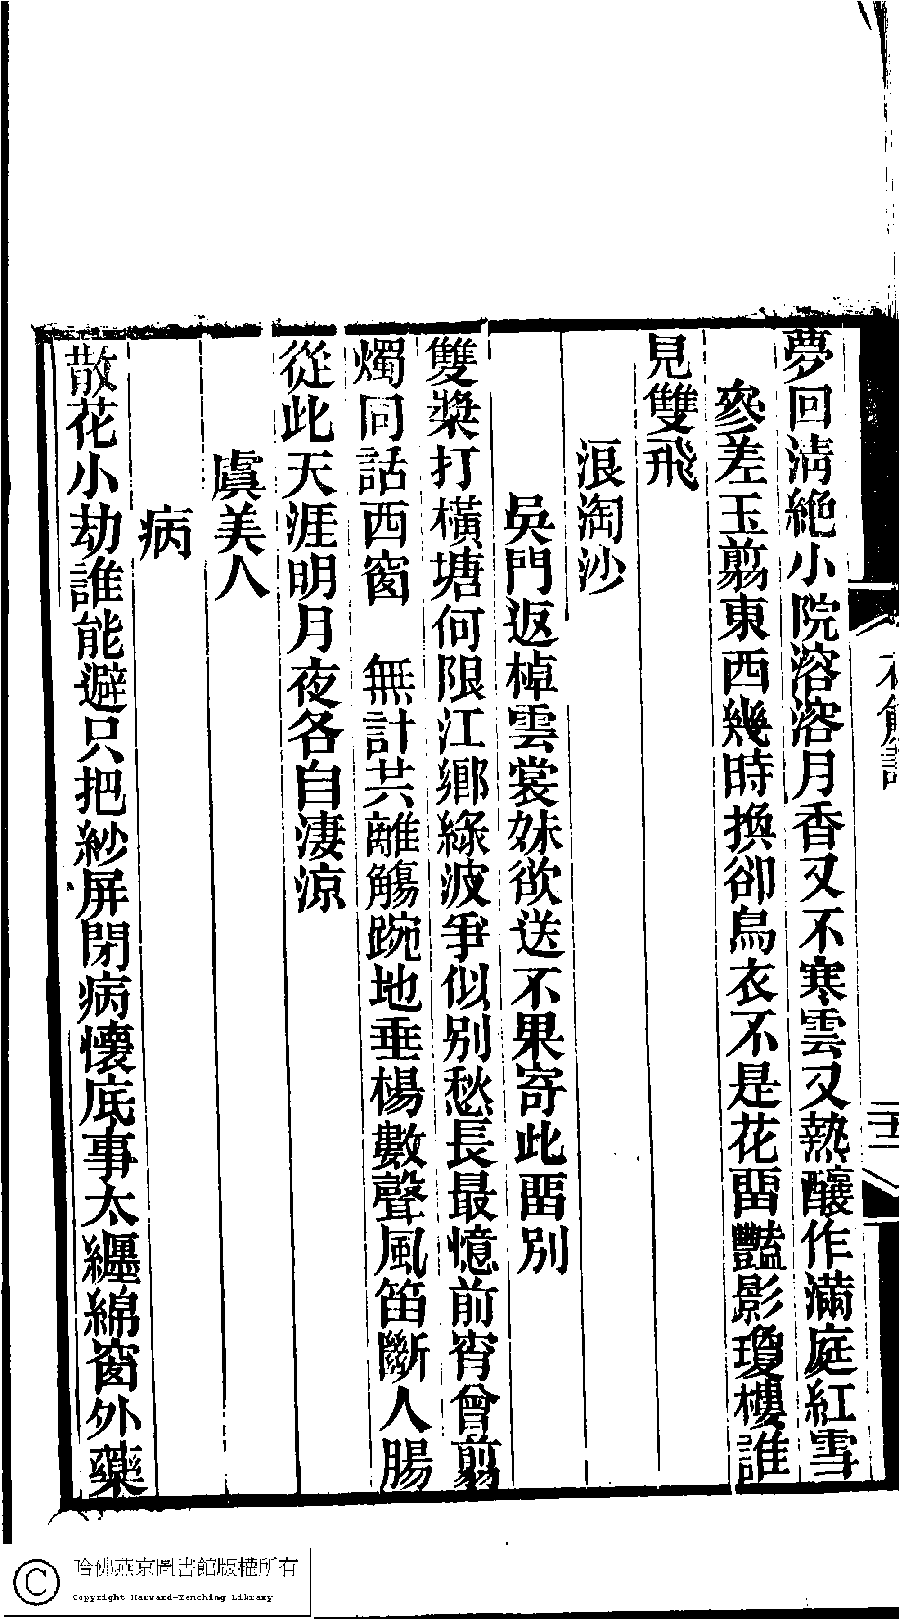 夢回清絶小院溶溶月香又不寒雲又熱釀作滿庭紅雪
參差玉翦東西幾時換卻烏衣不是花畱豔影瓊樓誰
見雙飛
浪淘沙
吳門返棹雲裳妹欲送不果寄此畱別
雙槳打橫塘何限江鄉綠波爭似別愁長最憶前宵曾翦
燭同話西窗　無計共離觴踠地垂楊數聲風笛斷人腸
從此天涯明月夜各自淒涼
虞美人
病
散花小劫誰能避只把紗屏閉病懷底事太纏綿窗外藥
哈佛燕京圖書館版權所有
Copyright Harvard-Yenching Library